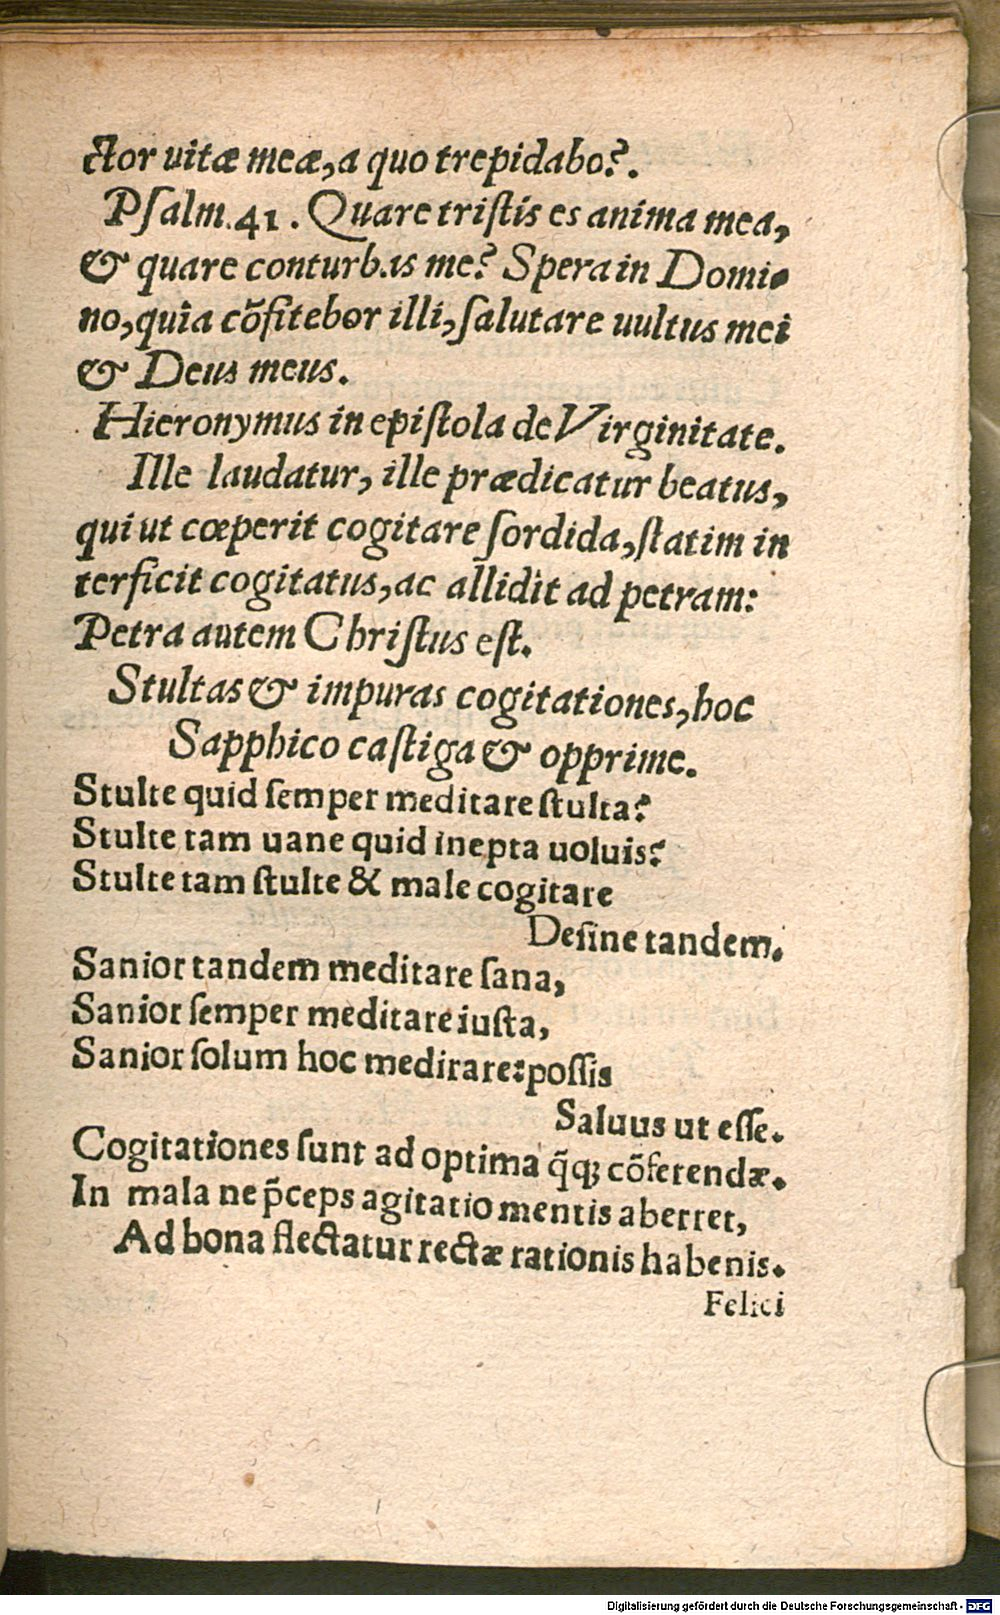 ctor uitæ meæ, a quo trepidabo?.
Pſalm. 41. Quare triſtis es anima mea,
& quare conturbas me? Spera in Domi-
no, quia cõfitebor illi, ſalutare uultus mei
& Deus meus.
Hieronymus in epiſtola de Virginitate.
Ille laudatur, ille prædicatur beatus,
qui ut cœperit cogitare ſordida, ſtatim in
terficit cogitatus, ac allidit ad petram:
Petra autem Chriſtus eſt.
Stultas & impuras cogitationes, hoc
Sapphico caſtiga & opprime.
Stulte quid ſemper meditare ſtulta?
Stulte tam uane quid inepta uoluis?
Stulte tam ſtulte & male cogitare
Deſine tandem.
Sanior tandem meditare ſana,
Sanior ſemper meditare iuſta,
Sanior ſolum hoc medirare: poſſis
Saluus ut eſſe.
Cogitationes ſunt ad optima q̃q; cõferendæ.
In mala ne p̃ceps agitatio mentis aberret,
Ad bona flectatur rectæ rationis habenis.
Felici
Digitalisierung gefördert durch die Deutsche Forschungsgemeinschaft - DFG